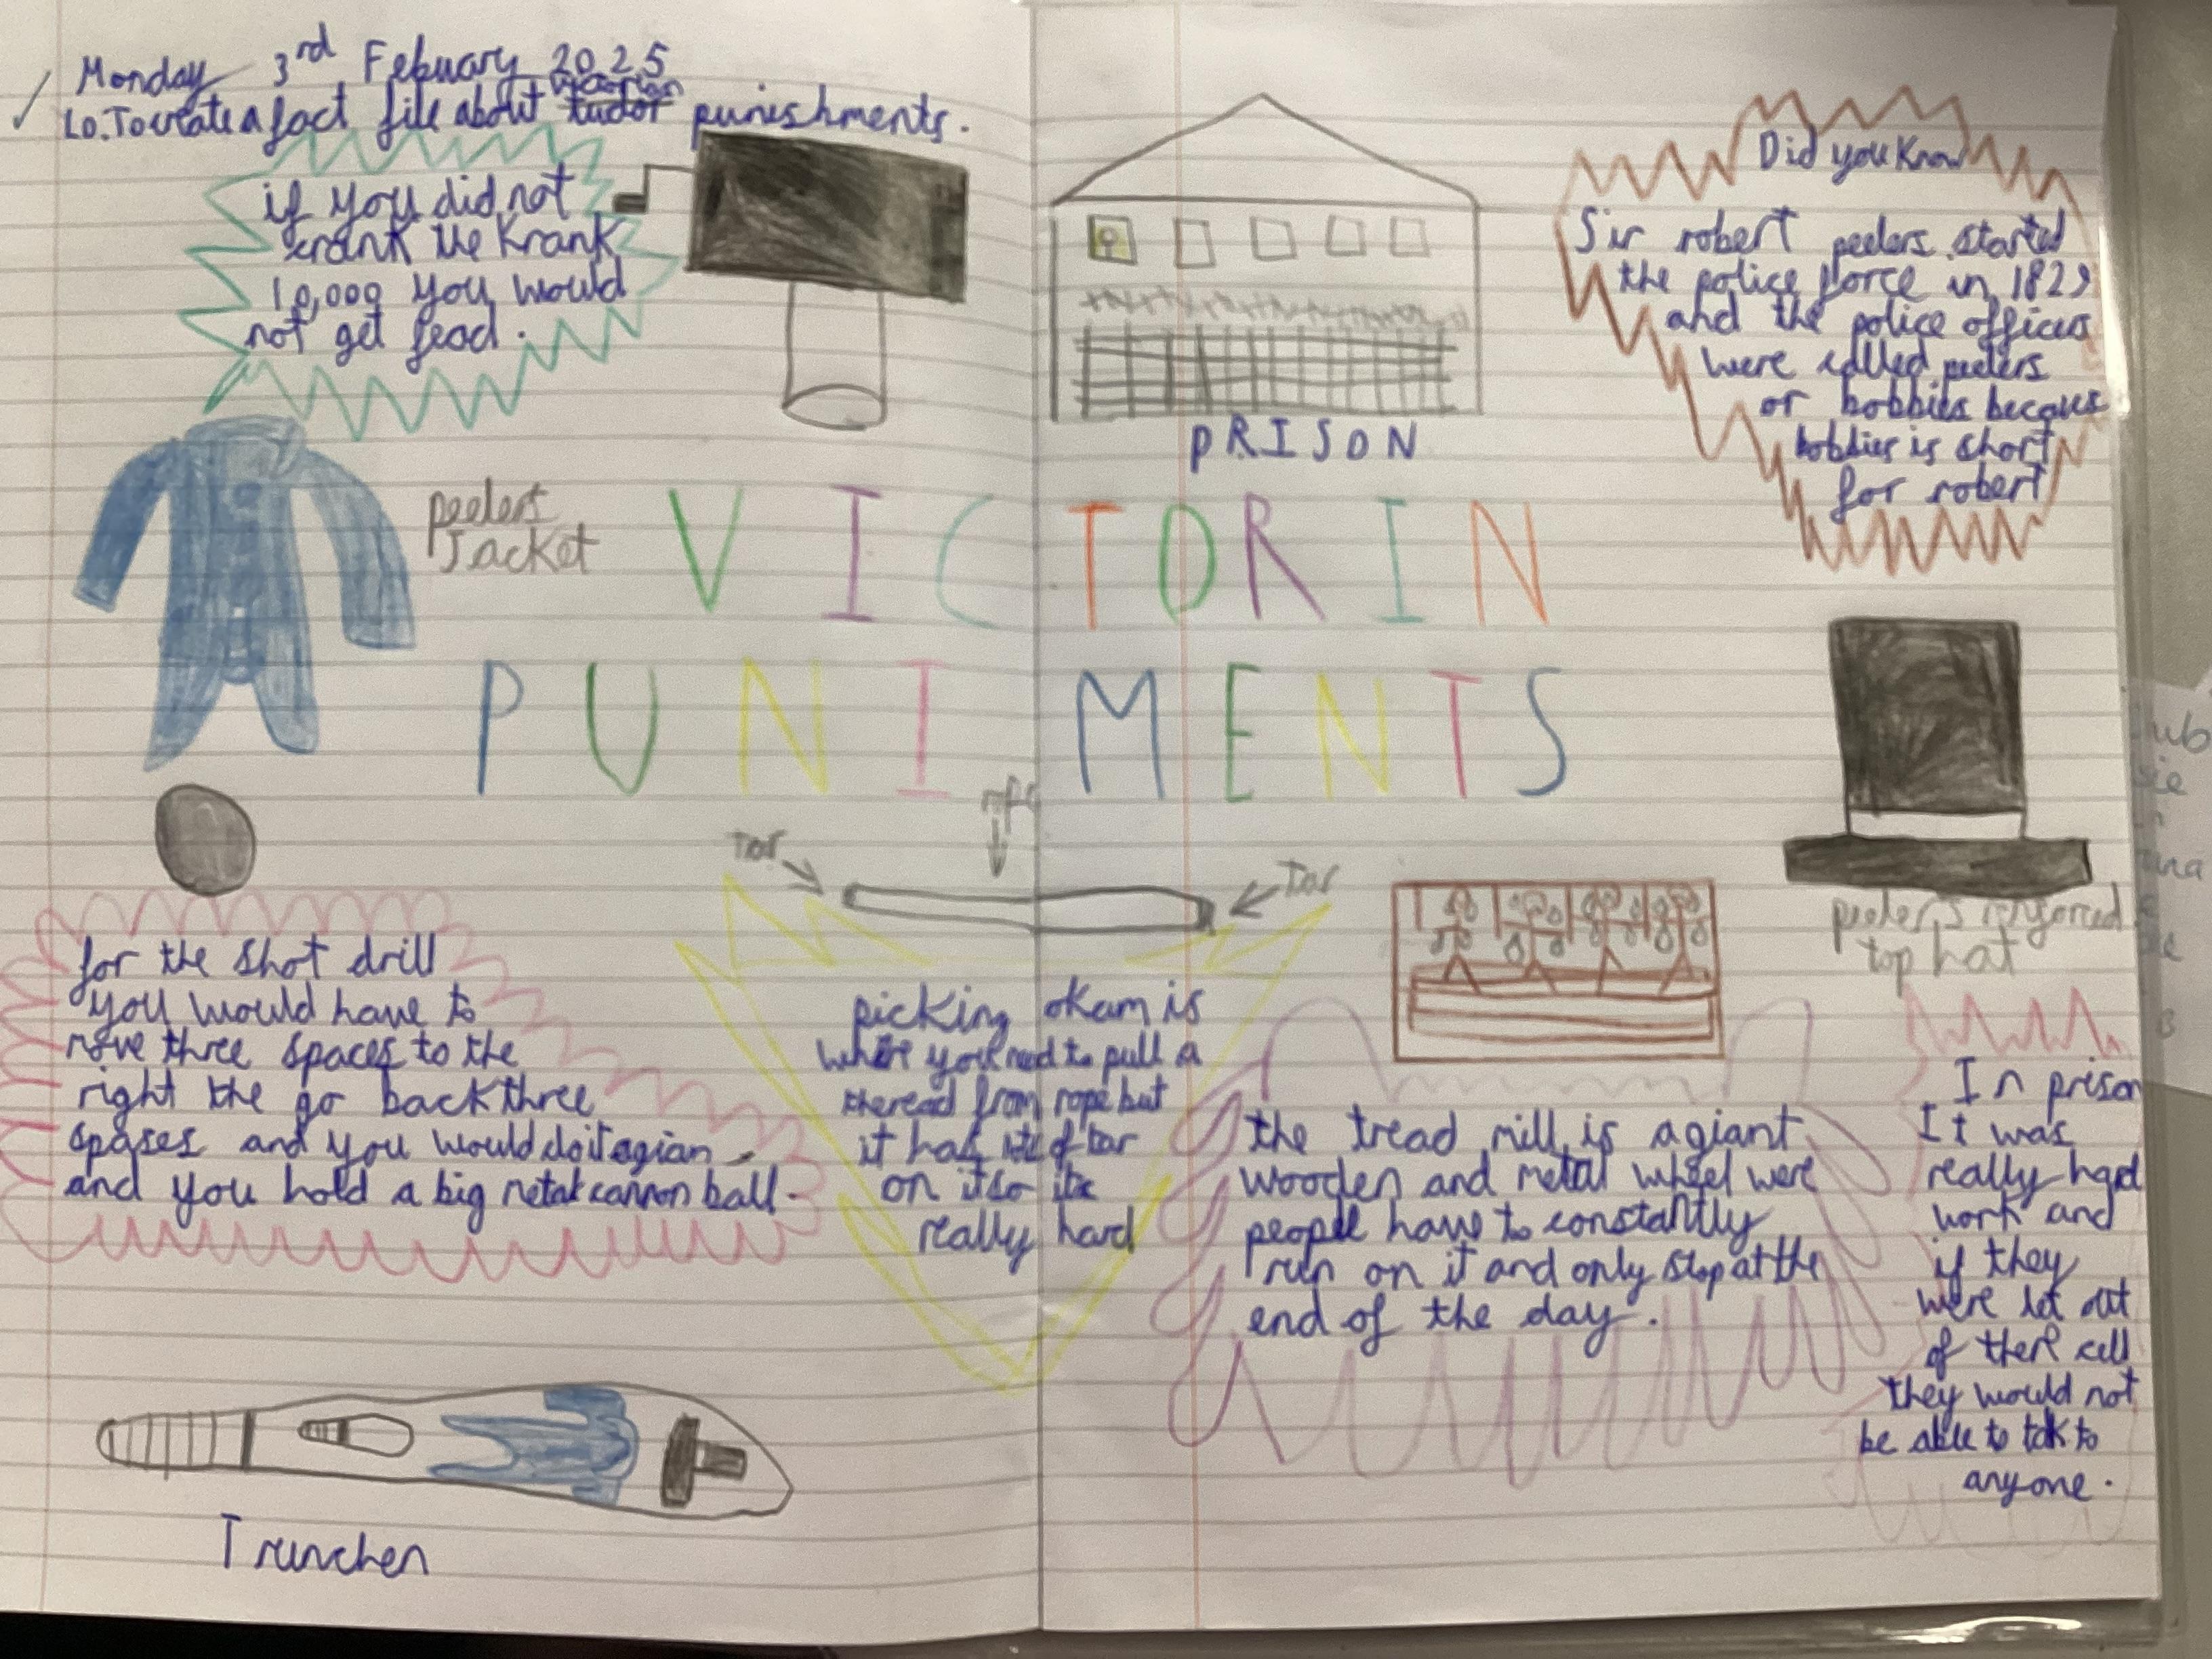 Monday 3rd Febuary 2025
Lo. To create a fact file about tudor victorian punishments.
if you did not
crank the Krank
10,000 you would
not get fead.
PRISON
Did you Know
Sir robert peelers started
the police force in 1829
and the police officers
were called peelers
or bobbies becaus
bobbies is short
for robert
peelers
Jacket
VICTORIN
PUNIMENTS
Tar
Tar
peeler's
top hat
for the shot drill
you would have to
move three spaces to the
right the go back three
spases and you would do it agian
and you hold a big metal cannon ball.
picking okam is
where you need to pull a
theread from rope but
it has lots of tar
on it so its
really hard
the tread mill is a giant
wooden and metal wheel were
people have to constantly
run on it and only stop at the
end of the day.
In prison
It was
really hard
work and
if they
were let out
of there cell
they would not
be able to talk to
anyone.
Trunchen